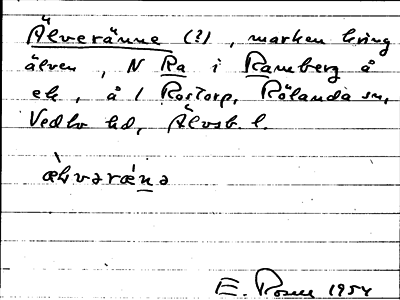 Älveränne (?), marken kring
älven, N Ra i Ramberg å
ek, å 1 Rostorp, Rölanda sn,
Vedbo hd, Älvsb. l.
E. Rosen 1954